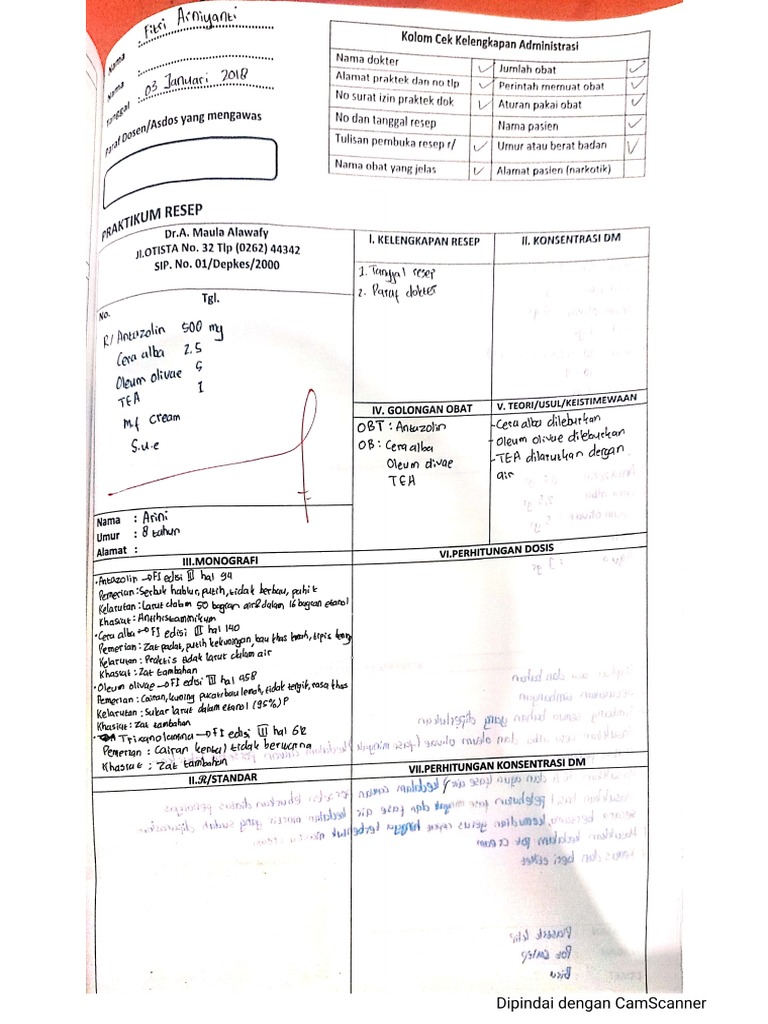 Nama : Fitri Arniyanti
Nama :
Tanggal : 03 Januari 2018
Paraf Dosen/Asdos yang mengawas
Kolom Cek Kelengkapan Administrasi
Nama dokter ✓ Jumlah obat ✓
Alamat praktek dan no tlp ✓ Perintah memuat obat ✓
No surat izin praktek dok ✓ Aturan pakai obat ✓
No dan tanggal resep Nama pasien ✓
Tulisan pembuka resep r/ ✓ Umur atau berat badan ✓
Nama obat yang jelas ✓ Alamat pasien (narkotik)
PRAKTIKUM RESEP
Dr.A. Maula Alawafy
Jl.OTISTA No. 32 Tlp (0262) 44342
SIP. No. 01/Depkes/2000
No. Tgl.
R/ Antazolin 500 mg
Cera alba 2.5
Oleum olivae 5
TEA 1
M.f cream
S.u.e
Nama : Arini
Umur : 8 tahun
Alamat :
I. KELENGKAPAN RESEP
1. Tanggal resep
2. Paraf dokter
II. KONSENTRASI DM
IV. GOLONGAN OBAT
OBT : Antazolin
OB : Cera alba
Oleum olivae
TEA
V. TEORI/USUL/KEISTIMEWAAN
- Cera alba dileburkan
- Oleum olivae dileburkan
- TEA dilarutkan dengan
air
III.MONOGRAFI
• Antazolin → FI edisi III hal 94
Pemerian : Serbuk hablur, putih, tidak berbau, pahit
Kelarutan : Larut dalam 50 bagian air & dalam 16 bagian etanol
Khasiat : Antihistaminikum
• Cera alba → FI edisi III hal 140
Pemerian : Zat padat, putih kekuningan, bau khas lemah, tipis
Kelarutan : Praktis tidak larut dalam air
Khasiat : Zat tambahan
• Oleum olivae → FI edisi III hal 458
Pemerian : Cairan, kuning pucat, bau lemah, tidak tengik, rasa khas
Kelarutan : Sukar larut dalam etanol (95%) P
Khasiat : Zat tambahan
Trietanolamina → FI edisi III hal 612
Pemerian : Cairan kental, tidak berwarna
Khasiat : Zat tambahan
VI.PERHITUNGAN DOSIS
II.R/STANDAR
VII.PERHITUNGAN KONSENTRASI DM
Dipindai dengan CamScanner